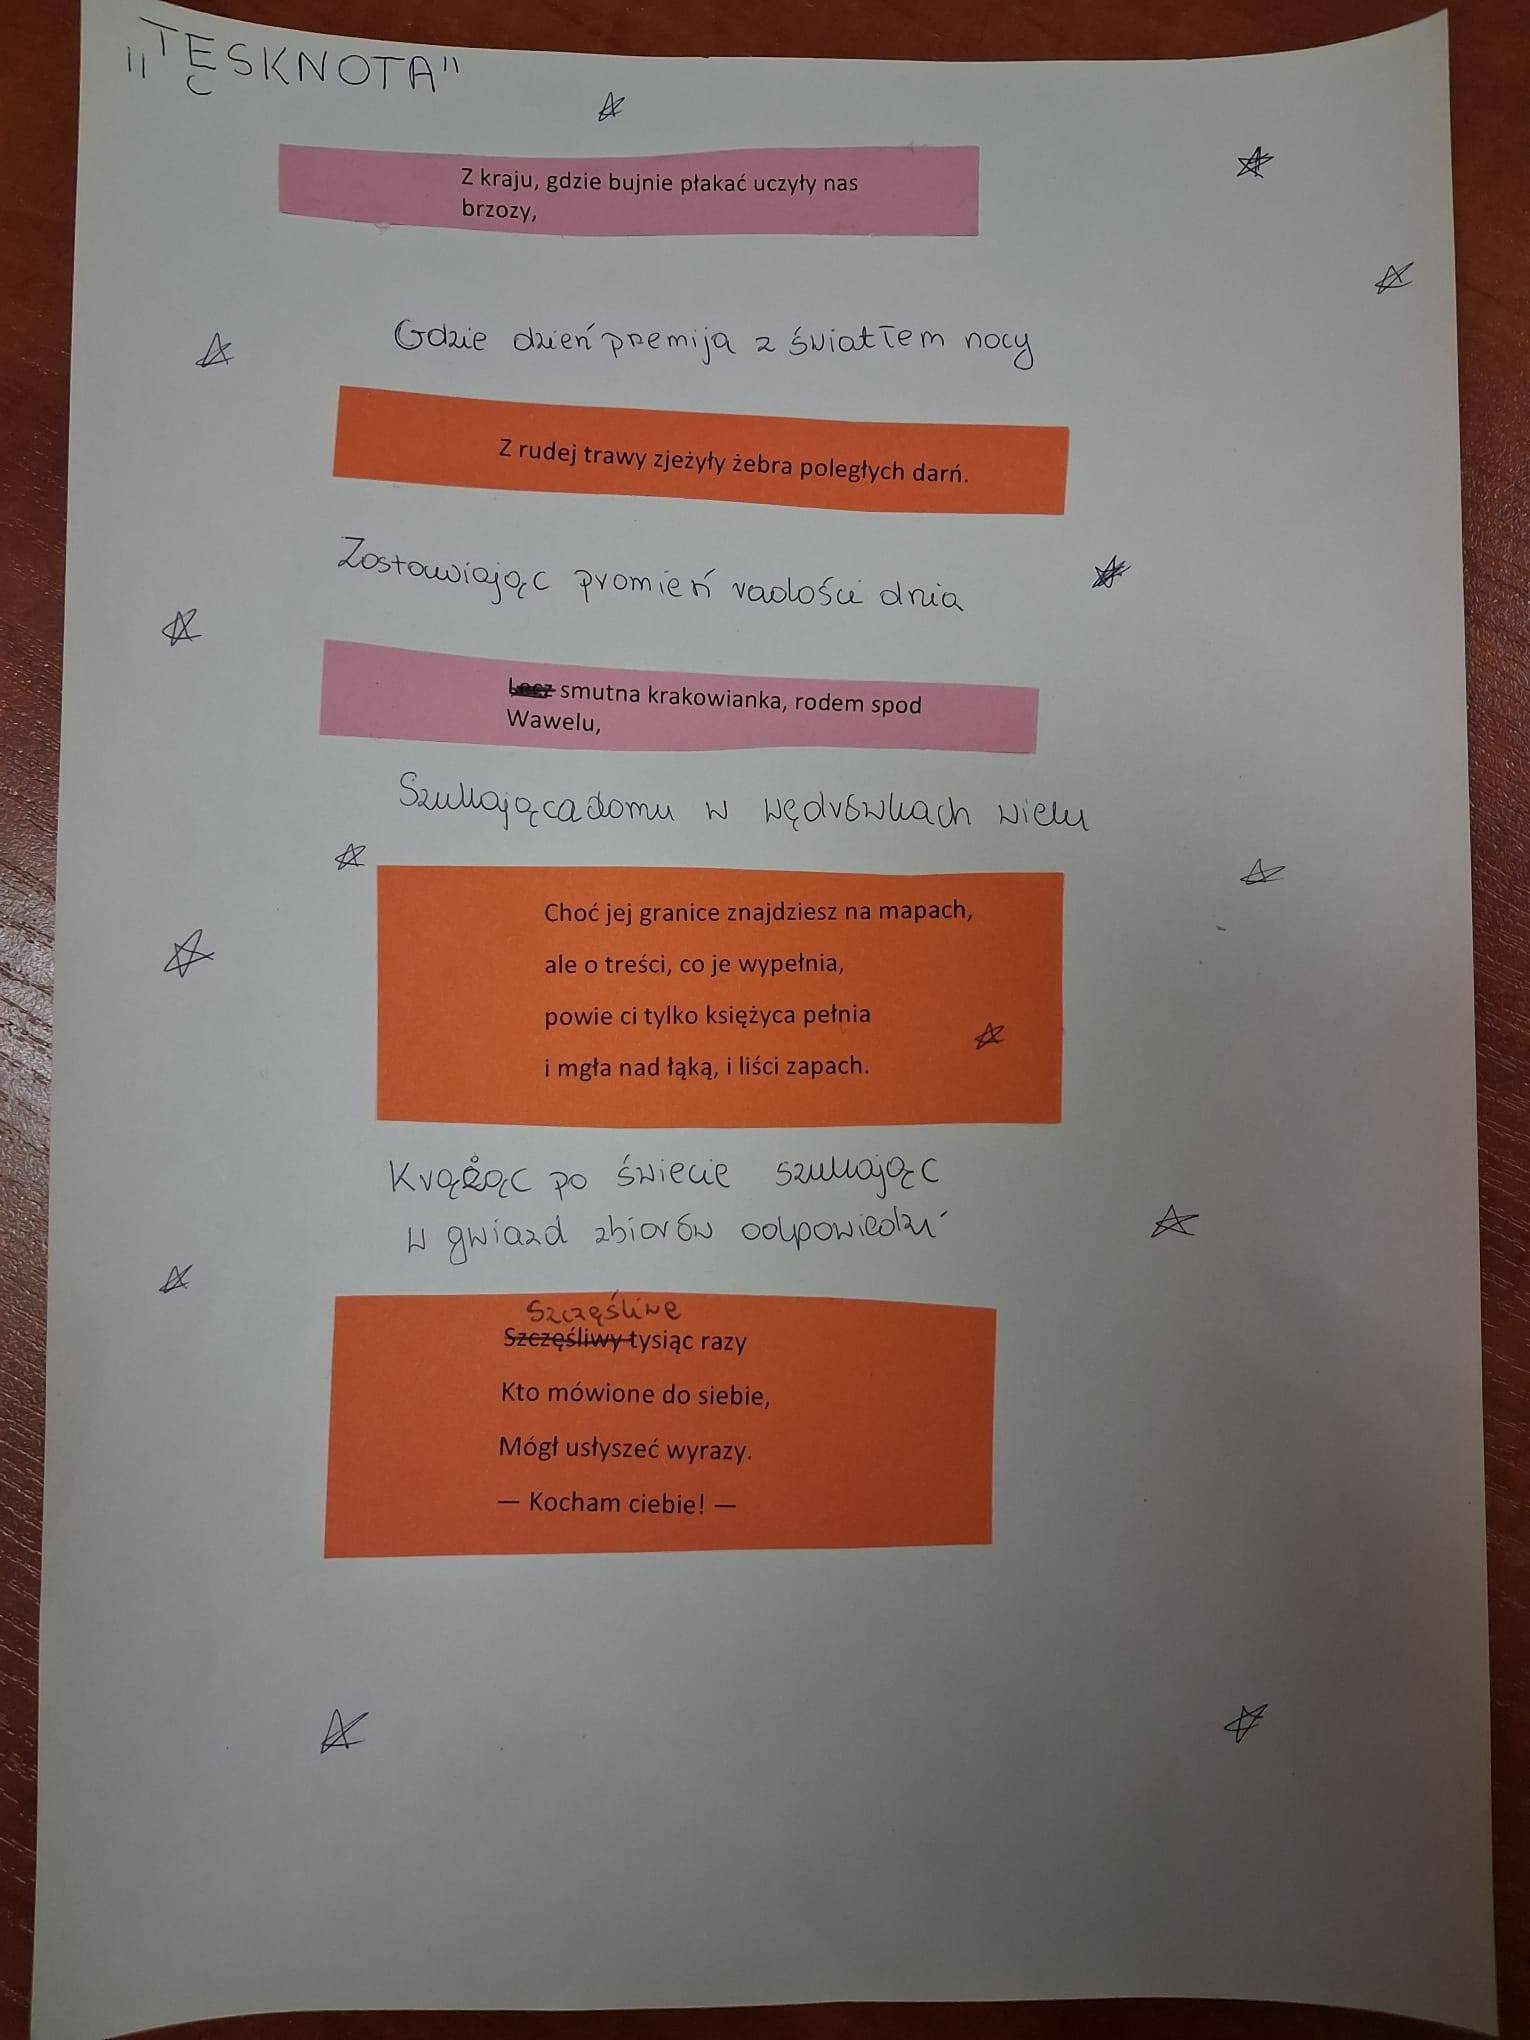 „TĘSKNOTA"
Z kraju, gdzie bujnie płakać uczyły nas
brzozy,
Gdzie dzień przemija z światłem nocy
Z rudej trawy zjeżyły żebra poległych darń.
Zostawiając promień radości dnia
Lecz smutna krakowianka, rodem spod
Wawelu,
Szukająca domu w wędrówkach wielu
Choć jej granice znajdziesz na mapach,
ale o treści, co je wypełnia,
powie ci tylko księżyca pełnia
i mgła nad łąką, i liści zapach.
Krążąc po świecie szukając
w gwiazd zbiorów odpowiedzi
Szczęśliwe
Szczęśliwy tysiąc razy
Kto mówione do siebie,
Mógł usłyszeć wyrazy.
— Kocham ciebie! —